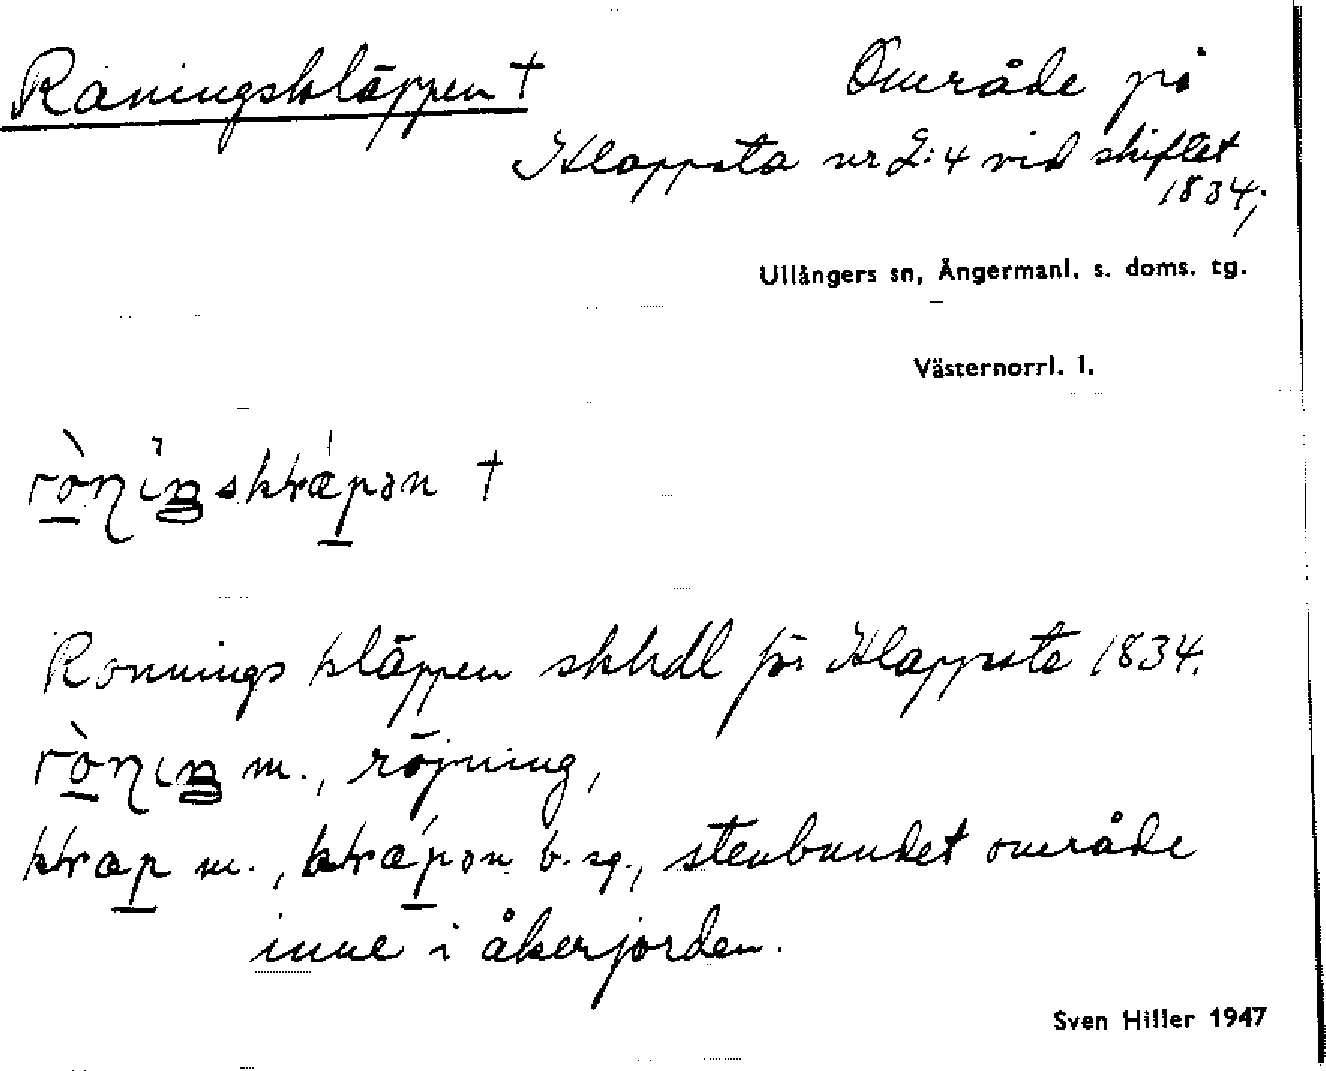 Råningskläppen †
Område på
Klappsta nr 2:4 vid skiftet
1834;
Ullångers sn, Ångermanl. s. doms. tg.
Västernorrl. l.
†
Ronnings kläppen skhdl för Klappsta 1834.
m., röjning,
m., b. sg., stenbundet område
inne i åkerjorden.
Sven Hiller 1947